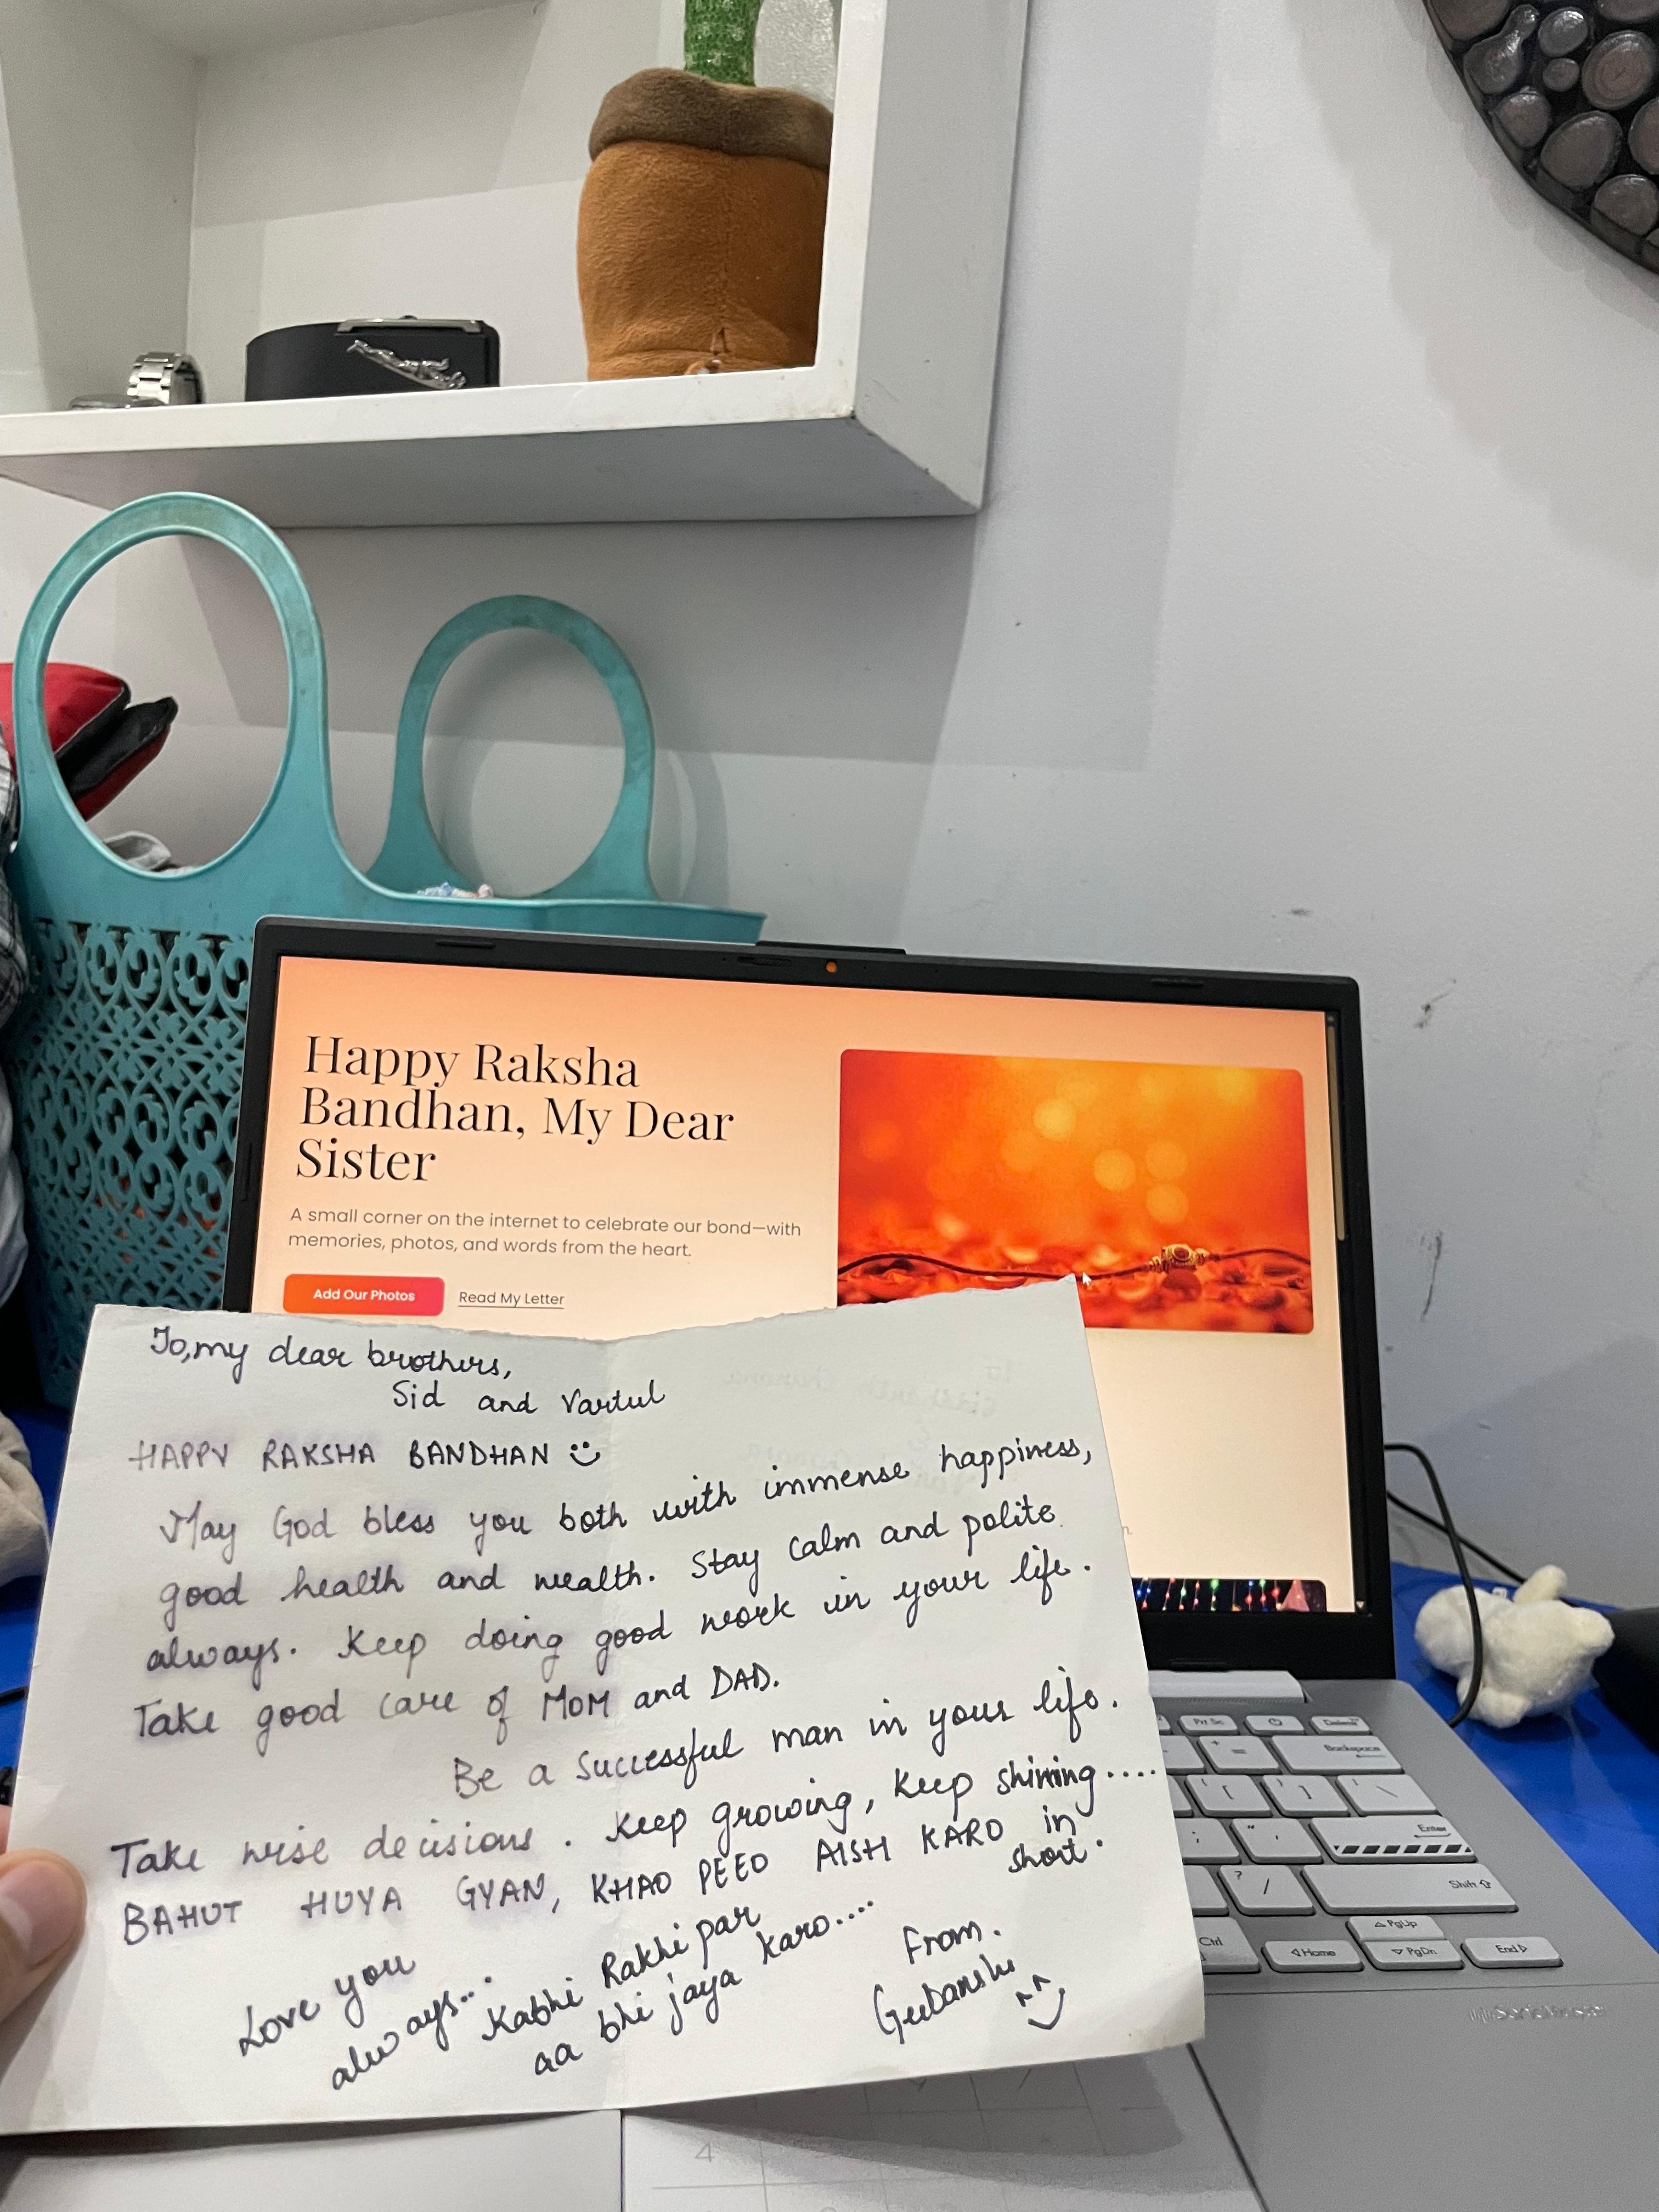 Happy Raksha
Bandhan, My Dear
Sister
A small corner on the internet to celebrate our bond—with
memories, photos, and words from the heart.
Add Our Photos
Read My Letter
To, my dear brothers,
Sid and Vartul
HAPPY RAKSHA BANDHAN
May God bless you both with immense happiness,
good health and wealth. Stay calm and polite
always. Keep doing good work in your life.
Take good care of MOM and DAD.
Be a successful man in your life.
Take wise decisions. Keep growing, Keep shining....
BAHUT HUYA GYAN, KHAO PEEO AISH KARO in
short.
Love you
always...
Kabhi Rakhi par
aa bhi jaya karo....
From.
Geebanshi
Prt Sc
Delete
+ =
Backspace
{ [
} ]
| \
: ;
" '
Enter
? /
Shift
Ctrl
PgUp
Home
PgDn
End
4